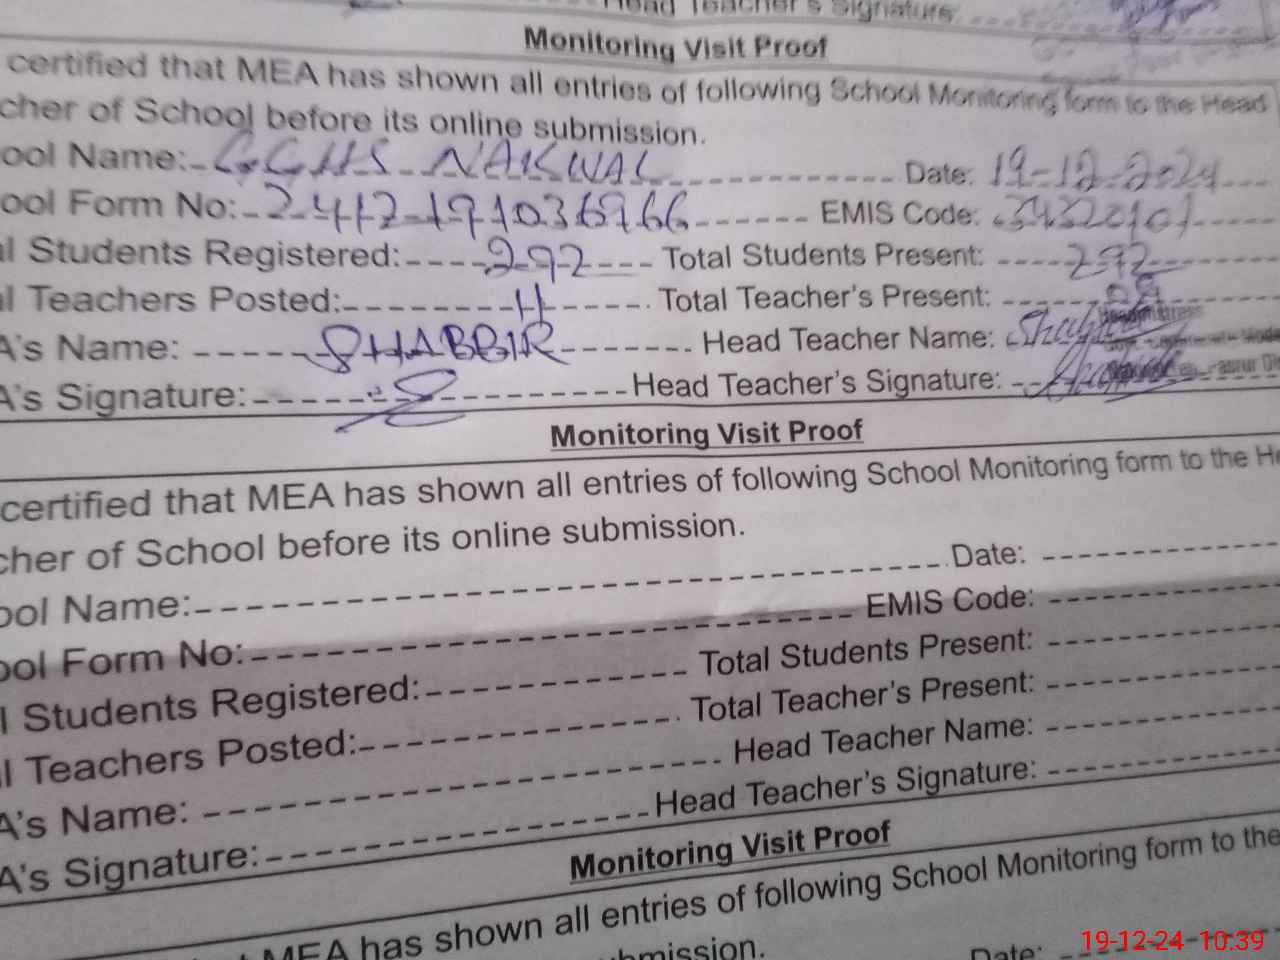 Head Teacher's Signature:
Monitoring Visit Proof
certified that MEA has shown all entries of following School Monitoring form to the Head
cher of School before its online submission.
ool Name: G.GHS NARWAL Date: 19-12-2024
ool Form No: EMIS Code:
al Students Registered: 292 Total Students Present: 292
al Teachers Posted: 11 Total Teacher's Present: 09
A's Name: SHABBIR Head Teacher Name:
A's Signature: Head Teacher's Signature:
Monitoring Visit Proof
certified that MEA has shown all entries of following School Monitoring form to the He
cher of School before its online submission.
ool Name: Date:
ool Form No: EMIS Code:
l Students Registered: Total Students Present:
l Teachers Posted: Total Teacher's Present:
A's Name: Head Teacher Name:
A's Signature: Head Teacher's Signature:
Monitoring Visit Proof
MEA has shown all entries of following School Monitoring form to the
bmission.
Date:
19-12-24 10:39